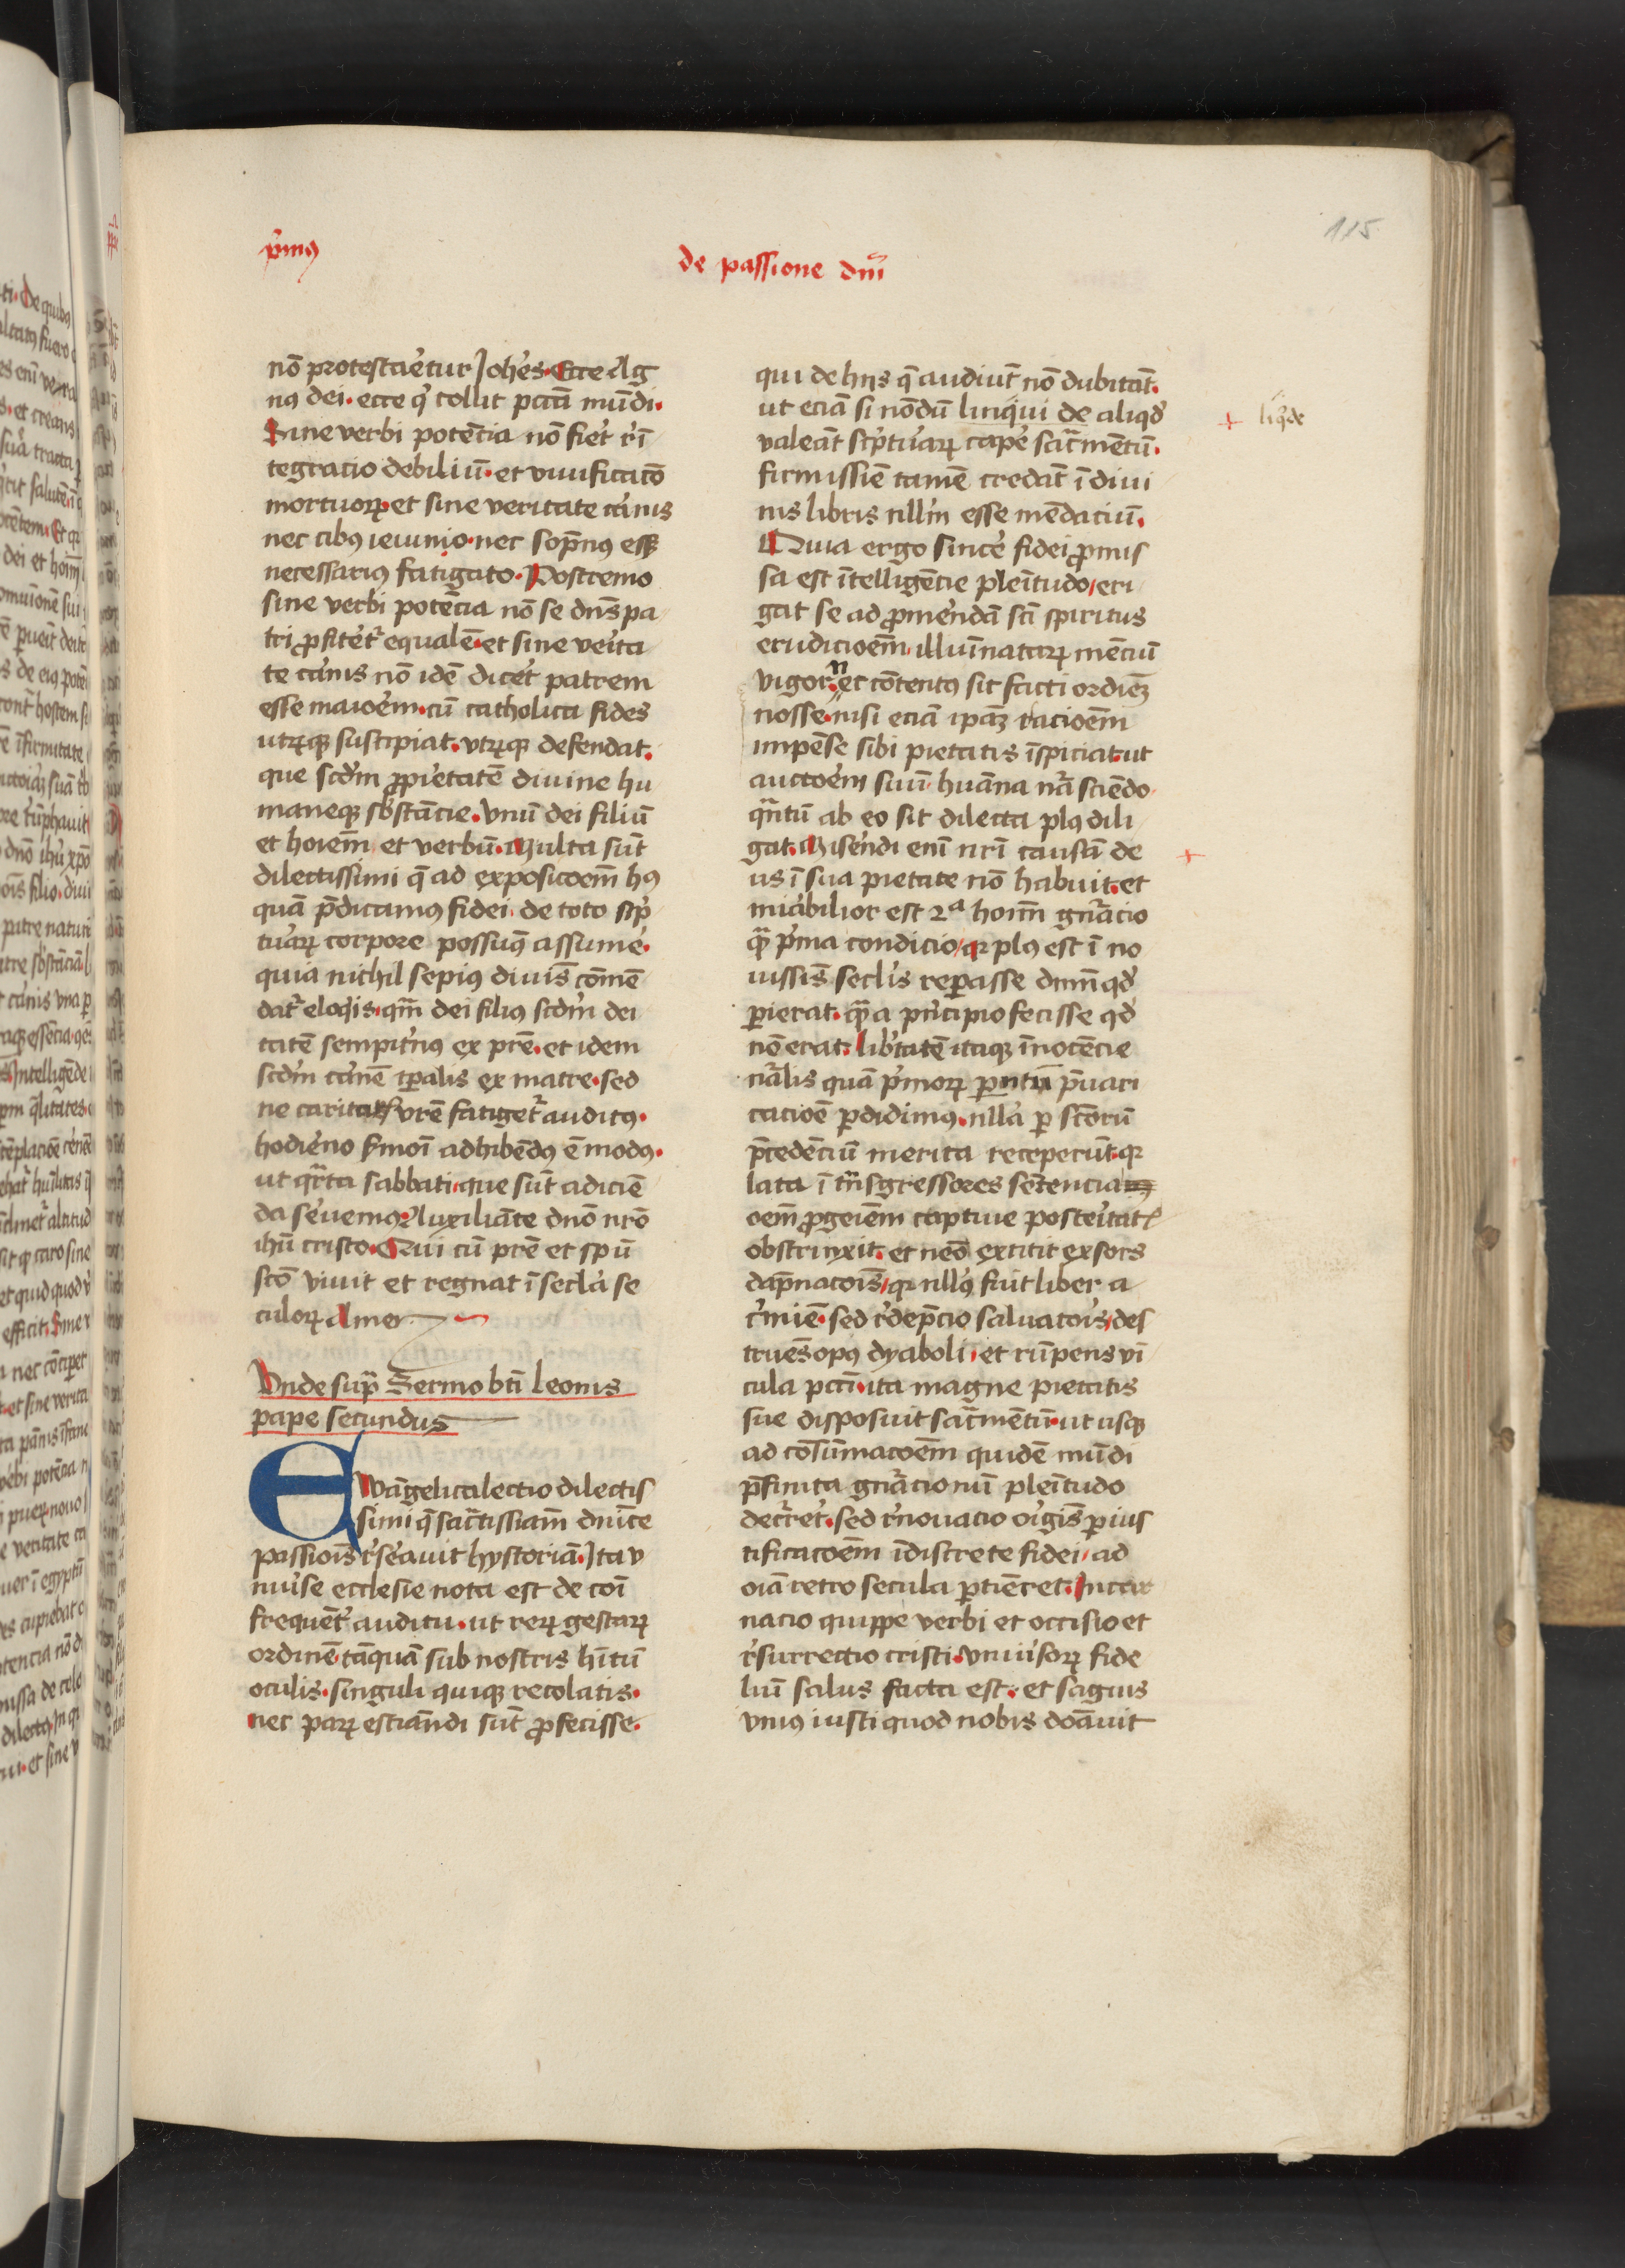 p̄mus
de passione dn̄i
115
nō protestaret̄ur Joh̄es. Ecce Ag
nꝰ dei. ecce qͥ tollit pccā mūdi.
Sine verbi potēcia nō fiet rͥī
tegracio debiliū. et viuificacō
mortuoꝝ. et sine veritate carnis
nec cibꝰ ieiunio. nec sopnꝰ eēt
necessariꝰ fatigato. Postremo
sine verbi potēcia nō se dn̄s pa
tri ꝓfiteret̄ equalē. et sine verita
te carnis nō idē diceret patrem
esse maiorem. cū catholica fides
utrūqꝫ suscipiat. vtrūqꝫ defendat.
que scd̄m ꝓprietatē diuine hu
maneqꝫ sb̄stācie. vnū dei filiū
et hoīem et verbū. Multa sūt
dilectissimi q̄ ad exposicōem hꝰ
quā p̄dicamꝰ fidei. de toto scͥp
turaꝝ corpore possumꝰ assumere.
quia nichil sepiꝰ diuīs cōmē
dat̄ eloqͥis. qm̄ dei filius scd̄m dei
tatē sempit̄nꝰ ex pr̄e. et idem
scd̄m carnē tp̄alis ex matre. sed
ne caritatꝭ vr̄e fatiget̄ auditꝰ.
hodierno s̄moī adhibēdꝰ ē modꝰ.
ut qͣrta sabbati. que sūt adiciē
da seruemꝰ. Auxiliāte dn̄o nr̄o
ih̄u cristo. Qui cū pr̄e et sp̄u
scō viuit et regnat ī secl̄a se
culoꝝ Amen
Vnde supͣ Sermo bt̄i leonis
pape secundus
Ewāgelica lectio dilectis
simi q̄ sacͣtissīam dn̄ice
passiōis rͥserauit hystoriā. Ita v
niuerse ecclesie nota est de coī
frequēt̄ auditu. ut reꝝ gestaꝝ
ordinē tāquā sub nostris hītū
oculis. singuli quiqꝫ recolatis.
nec paꝝ estiāndi sūt ꝓfecisse.
qui de hijs q̄ audiūt nō dubitāt.
ut eciā si nōdū linqͥui de aliqͦd
valeāt scͥpturaꝝ capere sacͣmentū.
firmissīe tamē credāt ī diui
nis libris nllm̄ esse mēdaciū.
Quia ergo sincere fidei ꝓmis
sa est ītelligēcie plēitudo, eri
gat se ad ꝓmerendā scī spiritus
erudicioēm. illuīnataꝝ mēciū
vigor. nec cōtentꝰ sit facti ordinē
nosse. nisi eciā ipāꝫ racioēm
impēse sibi pietatis īspiciat. ut
auctorem suū. huāna nr̄a sciēdo.
qͣntū ab eo sit dilecta plꝰ dili
gat. Miserendi enī nr̄i causā de
us ī sua pietate nō habuit. et
mirabilior est 2ᵃ hoīm gnͣacio
qͣ p̄ma condicio, qꝛ plꝰ est ī no
uissīs seclis reꝑasse dn̄m qͦd
ꝑierat. qͣ a pͥncipio fecisse qͦd
nō erat. Lib̄tatē itaqꝫ īnocēcie
nͣalis quā pͥmoꝝ ꝑentū p̄uari
cacioē ꝑdidimꝰ. nlla ꝑ scōrū
p̄cedēciū merita receperūt. qꝛ
lata ī tnͣsgressores sētencia
oēm ꝓgeiēm captiue posteritatꝭ
obstrinxit. et nēo extitit exsors
dāpnacōis, qꝛ nllꝰ fuit liber a
cͥmie. sed rͥdēpcio saluatoris, des
truēs opꝰ dyaboli. et rūpens vī
cula pccī. ita magne pietatis
sue disposuit sacͣmentū. ut usqꝫ
ad cōsūmacōem quidē mūdi
p̄finita gnͣacionū plēitudo
decͥret. sed rͥnouacio origīs ꝑ ius
tificacōem īdiscrete fidei, ad
oīa retro secula ꝑtiēret. Incar
nacio quippe verbi et occisio et
rͥsurrectio cristi. vniuersoꝝ fide
liū salus facta est. et sāguis
vniꝰ iusti quod nobis donauit
+ liqͥde
+